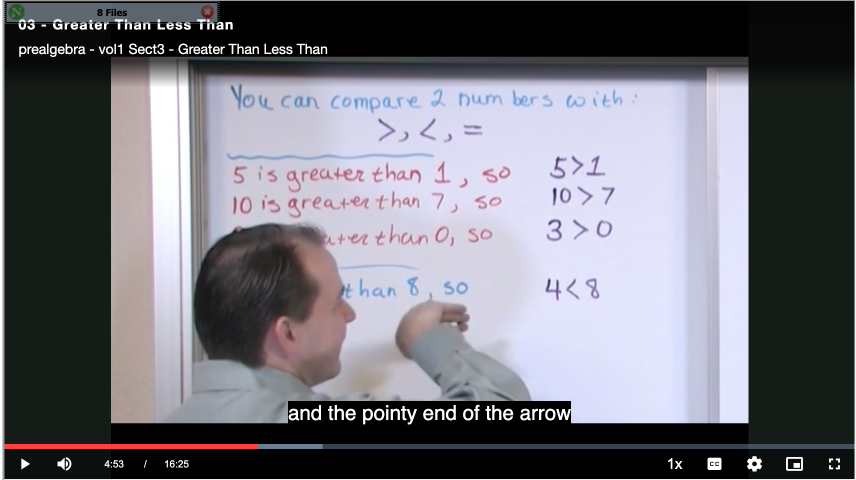 8 Files
03 - Greater Than Less Than
prealgebra - vol1 Sect3 - Greater Than Less Than
You can compare 2 numbers with:
>, <, =
5 is greater than 1, so 5>1
10 is greater than 7, so 10>7
than 0, so 3>0
than 8, so 4<8
and the pointy end of the arrow
4:53 / 16:25 1x CC